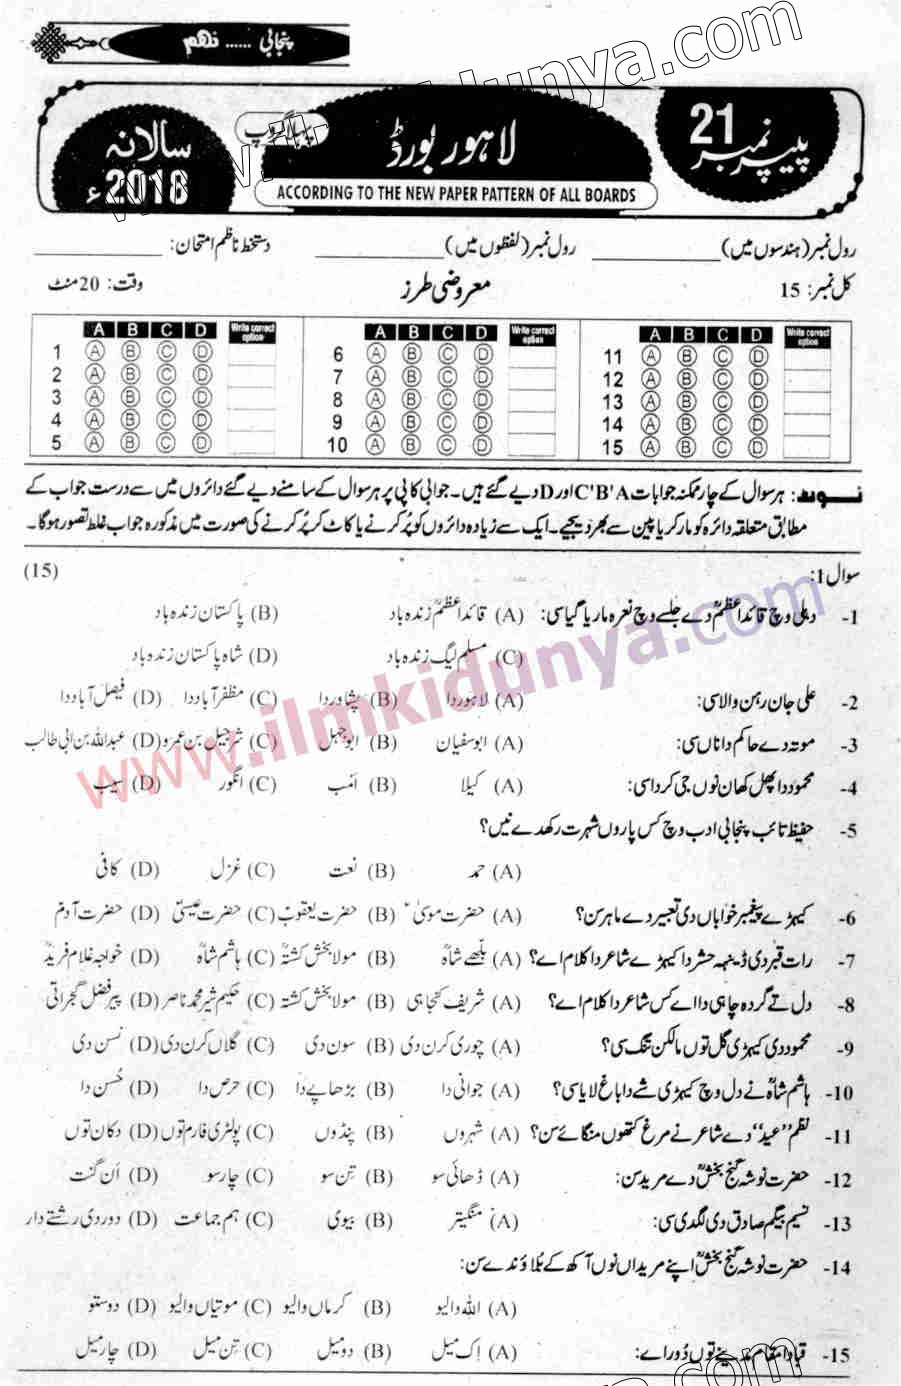 پنجابی ...... نہم
پیپر نمبر 21
لاہور بورڈ
پہلا گروپ
سالانہ 2018ء
ACCORDING TO THE NEW PAPER PATTERN OF ALL BOARDS
رول نمبر (ہندسوں میں) ____________ رول نمبر (لفظوں میں) ____________ دستخط ناظم امتحان: ____________
کل نمبر: 15 معروضی طرز وقت: 20 منٹ
A B C D Write correct option A B C D Write correct option A B C D Write correct option
1 A B C D 6 A B C D 11 A B C D
2 A B C D 7 A B C D 12 A B C D
3 A B C D 8 A B C D 13 A B C D
4 A B C D 9 A B C D 14 A B C D
5 A B C D 10 A B C D 15 A B C D
نوٹ: ہر سوال کے چار ممکنہ جوابات C'B'A اور D دیے گئے ہیں۔ جوابی کاپی پر ہر سوال کے سامنے دیے گئے دائروں میں سے درست جواب کے
مطابق متعلقہ دائرہ کو مارکر یا پین سے بھر دیجیے۔ ایک سے زیادہ دائروں کو پُر کرنے یا کاٹ کر پُر کرنے کی صورت میں مذکورہ جواب غلط تصور ہوگا۔
سوال 1: (15)
1- دہلی وچ قائداعظمؒ دے جلسے وچ نعرہ ماریا گیا سی: (A) قائداعظمؒ زندہ باد (B) پاکستان زندہ باد
(C) مسلم لیگ زندہ باد (D) شاہ پاکستان زندہ باد
2- علی جان رہن والا سی: (A) لاہور دا (B) پشاور دا (C) مظفر آباد دا (D) فیصل آباد دا
3- موتہ دے حاکم دا ناں سی: (A) ابوسفیان (B) ابوجہل (C) شرجیل بن عمرو (D) عبداللہ بن ابی طالب
4- محمود دا پھل کھان نوں جی کردا سی: (A) کیلا (B) اَمب (C) انگور (D) سیب
5- حفیظ تائب پنجابی ادب وچ کس پاروں شہرت رکھدے نیں؟
(A) حمد (B) نعت (C) غزل (D) کافی
6- کیہڑے پیغمبر خواباں دی تعبیر دے ماہر سن؟ (A) حضرت موسیٰؑ (B) حضرت یعقوبؑ (C) حضرت عیسیٰؑ (D) حضرت آدمؑ
7- رات قبر دی ڈینہہ حشر دا کیہڑے شاعر دا کلام اے؟ (A) بلھے شاہؒ (B) مولا بخش کشتہؒ (C) ہاشم شاہؒ (D) خواجہ غلام فریدؒ
8- دل تے گردہ چاہی دا اے کس شاعر دا کلام اے؟ (A) شریف کنجاہی (B) مولا بخش کشتہ (C) حکیم شیر محمد ناصر (D) پیر فضل گجراتی
9- محمود دی کیہڑی گل توں مالکن تنگ سی؟ (A) چوری کرن دی (B) سون دی (C) گلاں کرن دی (D) نسن دی
10- ہاشم شاہؒ نے دل وچ کیہڑی شے دا باغ لایا سی؟ (A) جوانی دا (B) بڑھاپے دا (C) حرص دا (D) حُسن دا
11- نظم ’’عید‘‘ دے شاعر نے مرغ کتھوں منگائے سن؟ (A) شہروں (B) پنڈوں (C) پولٹری فارم توں (D) دکان توں
12- حضرت نوشہ گنج بخشؒ دے مرید سن: (A) ڈھائی سو (B) تِن سو (C) چار سو (D) اَن گنت
13- نسیم بیگم صادق دی لگدی سی: (A) منگیتر (B) بیوی (C) ہم جماعت (D) دور دی رشتے دار
14- حضرت نوشہ گنج بخشؒ اپنے مریداں نوں آکھ کے بلاؤندے سن:
(A) اللہ والیو (B) کرماں والیو (C) موتیاں والیو (D) دوستو
15- قبا دا مقام مدینے توں دُور اے: (A) اِک میل (B) دو میل (C) تِن میل (D) چار میل
www.ilmkidunya.com